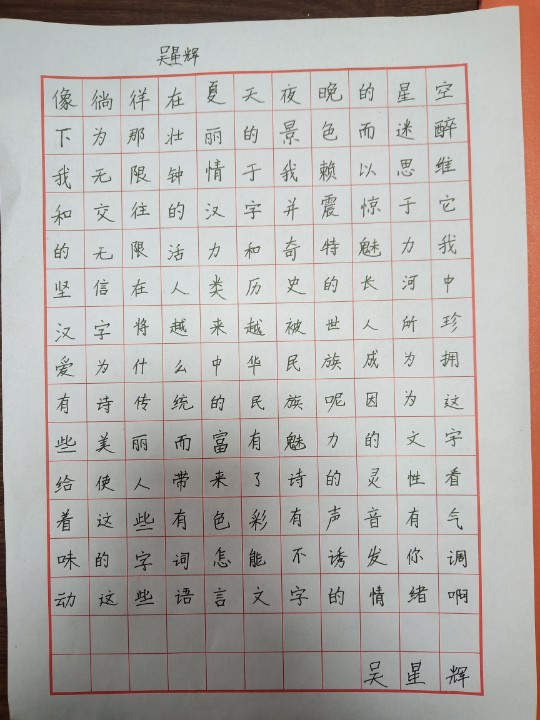 吴星辉
像徜徉在夏天夜晚的星空
下为那壮丽的景色而迷醉
我无限钟情于我赖以思维
和交往的汉字并震惊于它
的无限活力和奇特魅力我
坚信在人类历史的长河中
汉字将越来越被世人所珍
爱为什么中华民族成为拥
有诗传统的民族呢因为这
些美丽而富有魅力的文字
给使人带来了诗的灵性看
着这些有色彩有声音有气
味的字词怎能不诱发你调
动这些语言文字的情绪啊
吴星辉